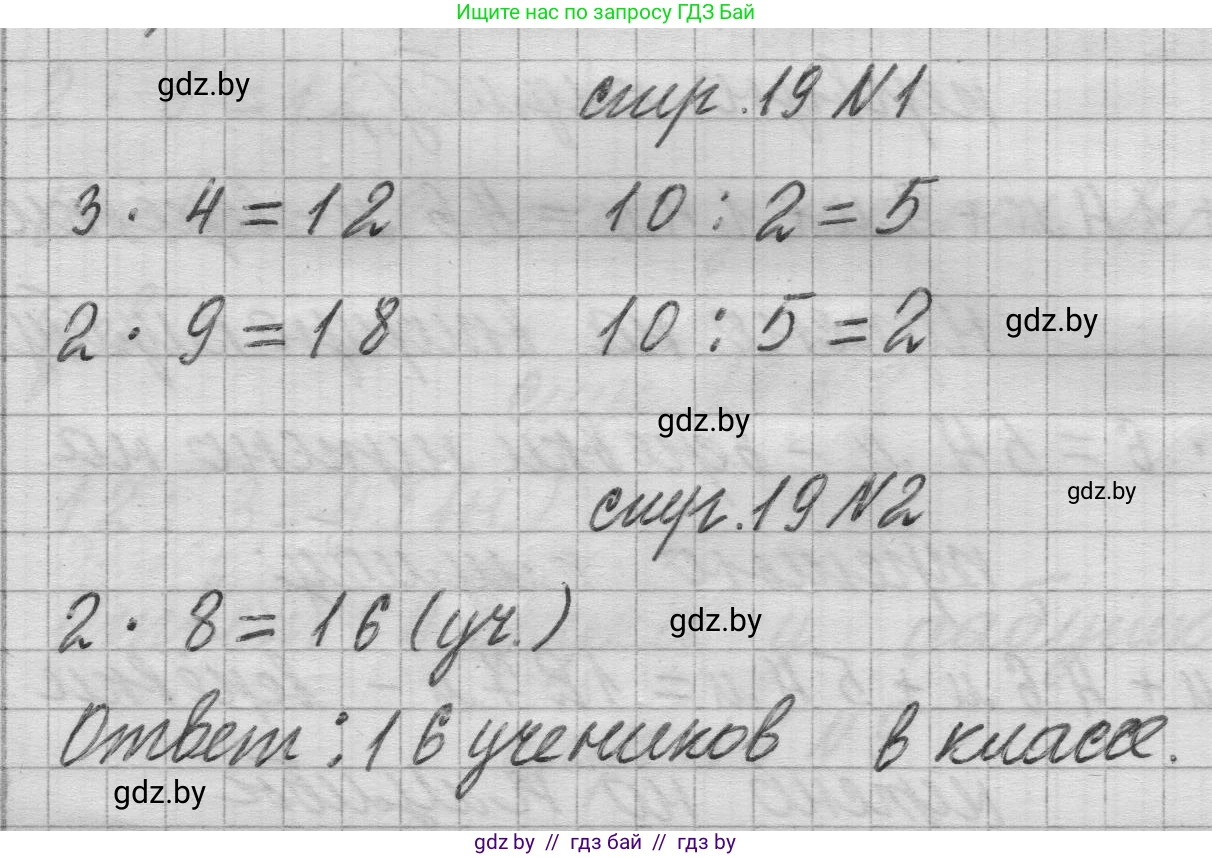 Ищите нас по запросу ГДЗ Бай
gdz.by
стр. 19 N1
3 · 4 = 12 10 : 2 = 5
2 · 9 = 18 10 : 5 = 2
gdz.by
gdz.by
gdz.by
стр. 19 N2
2 · 8 = 16 (уч.)
gdz.by
Ответ : 16 учеников в классе.
gdz.by
gdz.by // гдз бай // гдз by